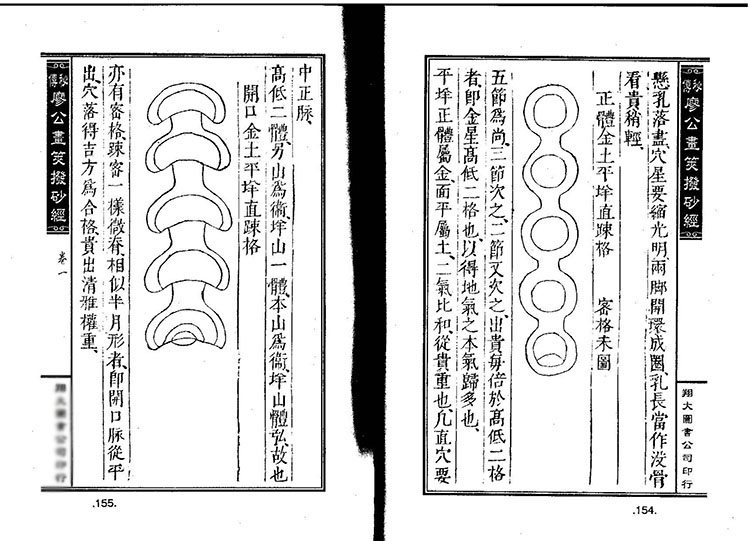 懸乳落盡穴星要縮光明兩脚開環成圈乳長當作沒骨
看貴稍輕
正體金土平垟直踈格 宻格未圖
五節爲尚三節次之二節又次之出貴每倍於髙低二格
者卽金星髙低二格也以得地氣之本氣歸多也
平垟正體屬金面平屬土二氣比和從貴重也凡直穴要
秘傳廖公畫筴撥砂經
翔大圖書公司印行
.154.
中正脉
髙低二體另山爲衞垟山一體本山爲衞垟山體弘故也
開口金土平垟直踈格
亦有宻格踈宻一樣微脊相似半月形者卽開口脉從平
出穴落得吉方爲合格貴出清雅權重
秘傳廖公畫筴撥砂經
卷一
翔大圖書公司印行
.155.